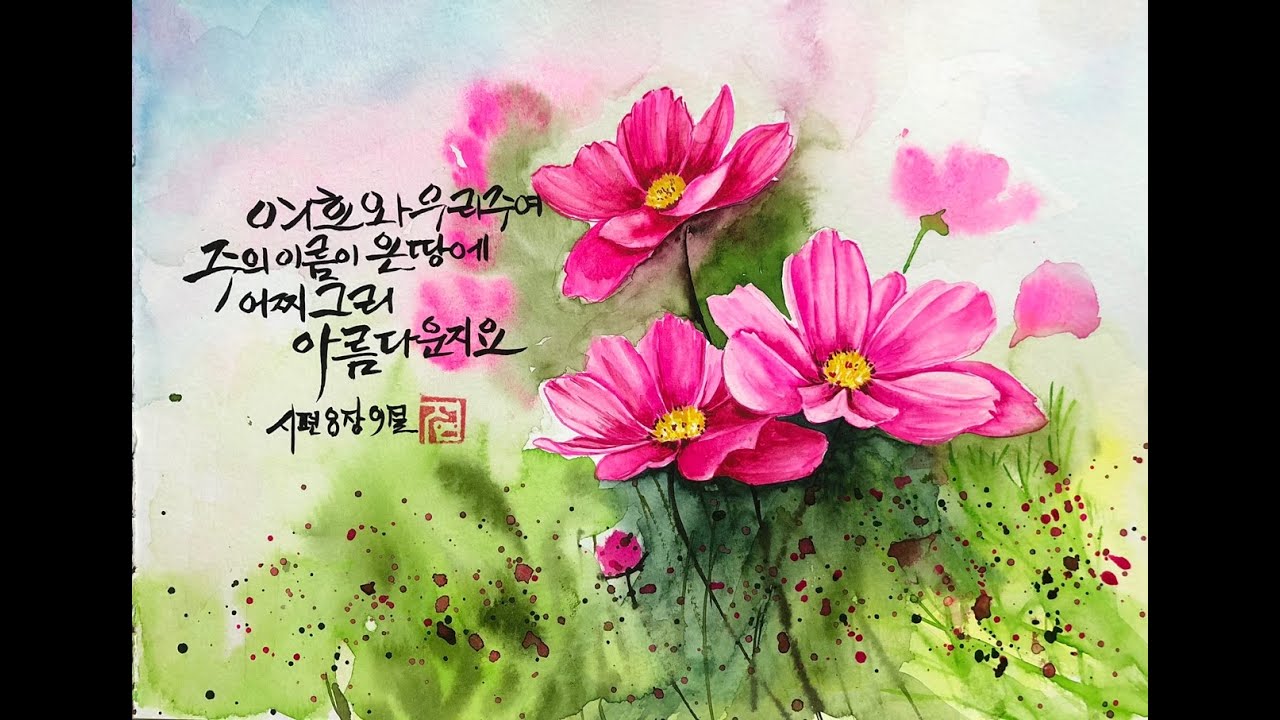 여호와 우리주여
주의 이름이 온땅에
어찌 그리
아름다운지요
시편 8장 9절